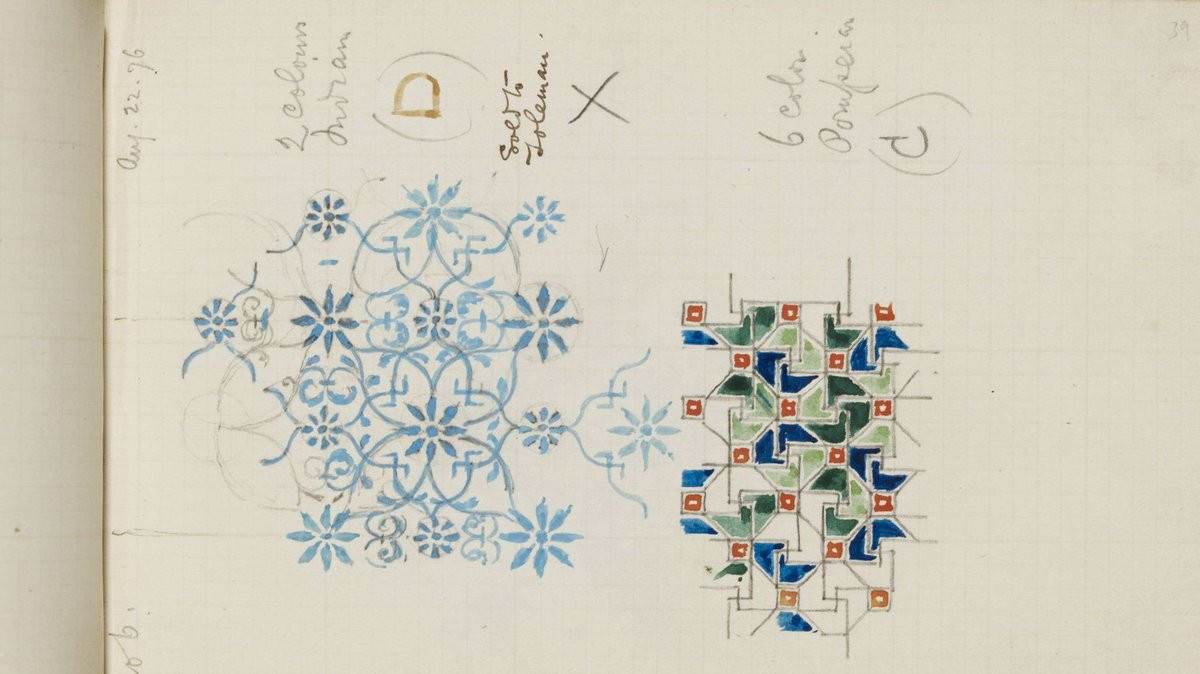 Aug. 22. 96
2 colours
Indian
(D)
Sold to
Toleman.
X
6 colrs.
Pompeian
(C)
39